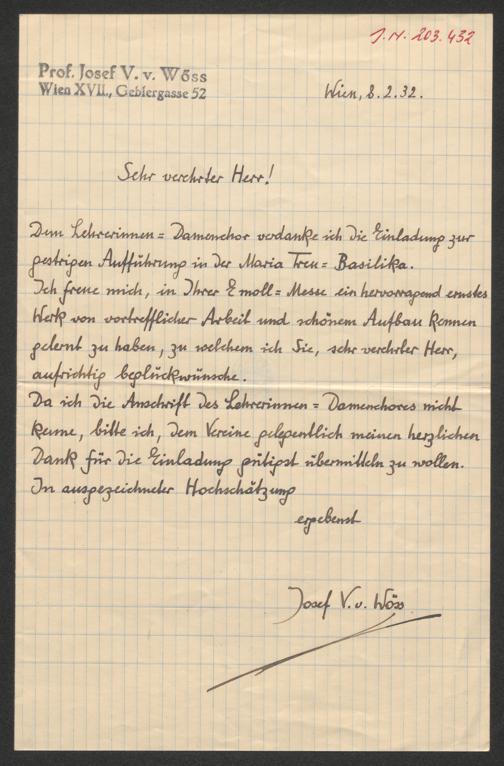 J.N. 203.432
Prof. Josef V. v. Wöss
Wien XVII., Geblergasse 52
Wien, 8.2.32.
Sehr verehrter Herr!
Dem Lehrerinnen=Damenchor verdanke ich die Einladung zur
gestrigen Aufführung in der Maria Treu=Basilika.
Ich freue mich, in Ihrer E moll=Messe ein hervorragend ernstes
Werk von vortrefflicher Arbeit und schönem Aufbau kennen
gelernt zu haben, zu welchem ich Sie, sehr verehrter Herr,
aufrichtig beglückwünsche.
Da ich die Anschrift des Lehrerinnen=Damenchores nicht
kenne, bitte ich, dem Vereine gelegentlich meinen herzlichen
Dank für die Einladung gütigst übermitteln zu wollen.
In ausgezeichneter Hochschätzung
ergebenst
Josef V. v. Wöss